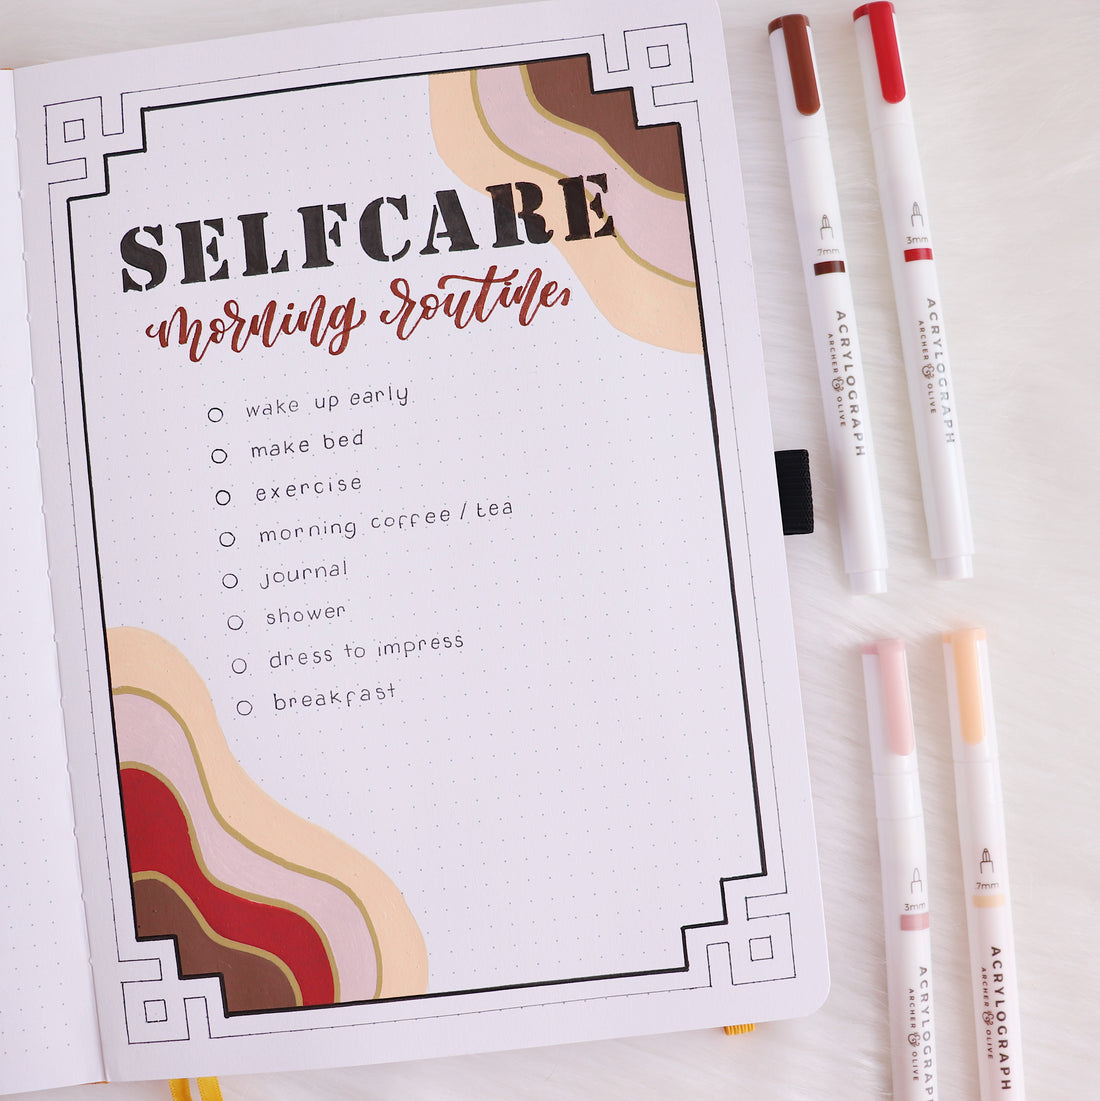 SELFCARE
morning routine
wake up early
make bed
exercise
morning coffee / tea
journal
shower
dress to impress
breakfast
.7mm
ACRYLOGRAPH
ARCHER & OLIVE
3mm
ACRYLOGRAPH
ARCHER & OLIVE
3mm
ACRYLOGRAP
ARCHER & OLIVE
.7mm
ACRYLOGRAPH
ARCHER & OLIVE